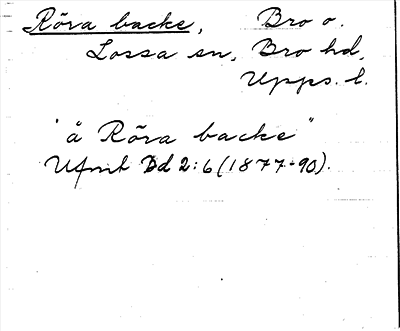 Röra backe, Bro o.
Lossa sn, Bro hd,
Upps. l.
"å Röra backe"
Ufmt Bd 2:6 (1877-90).